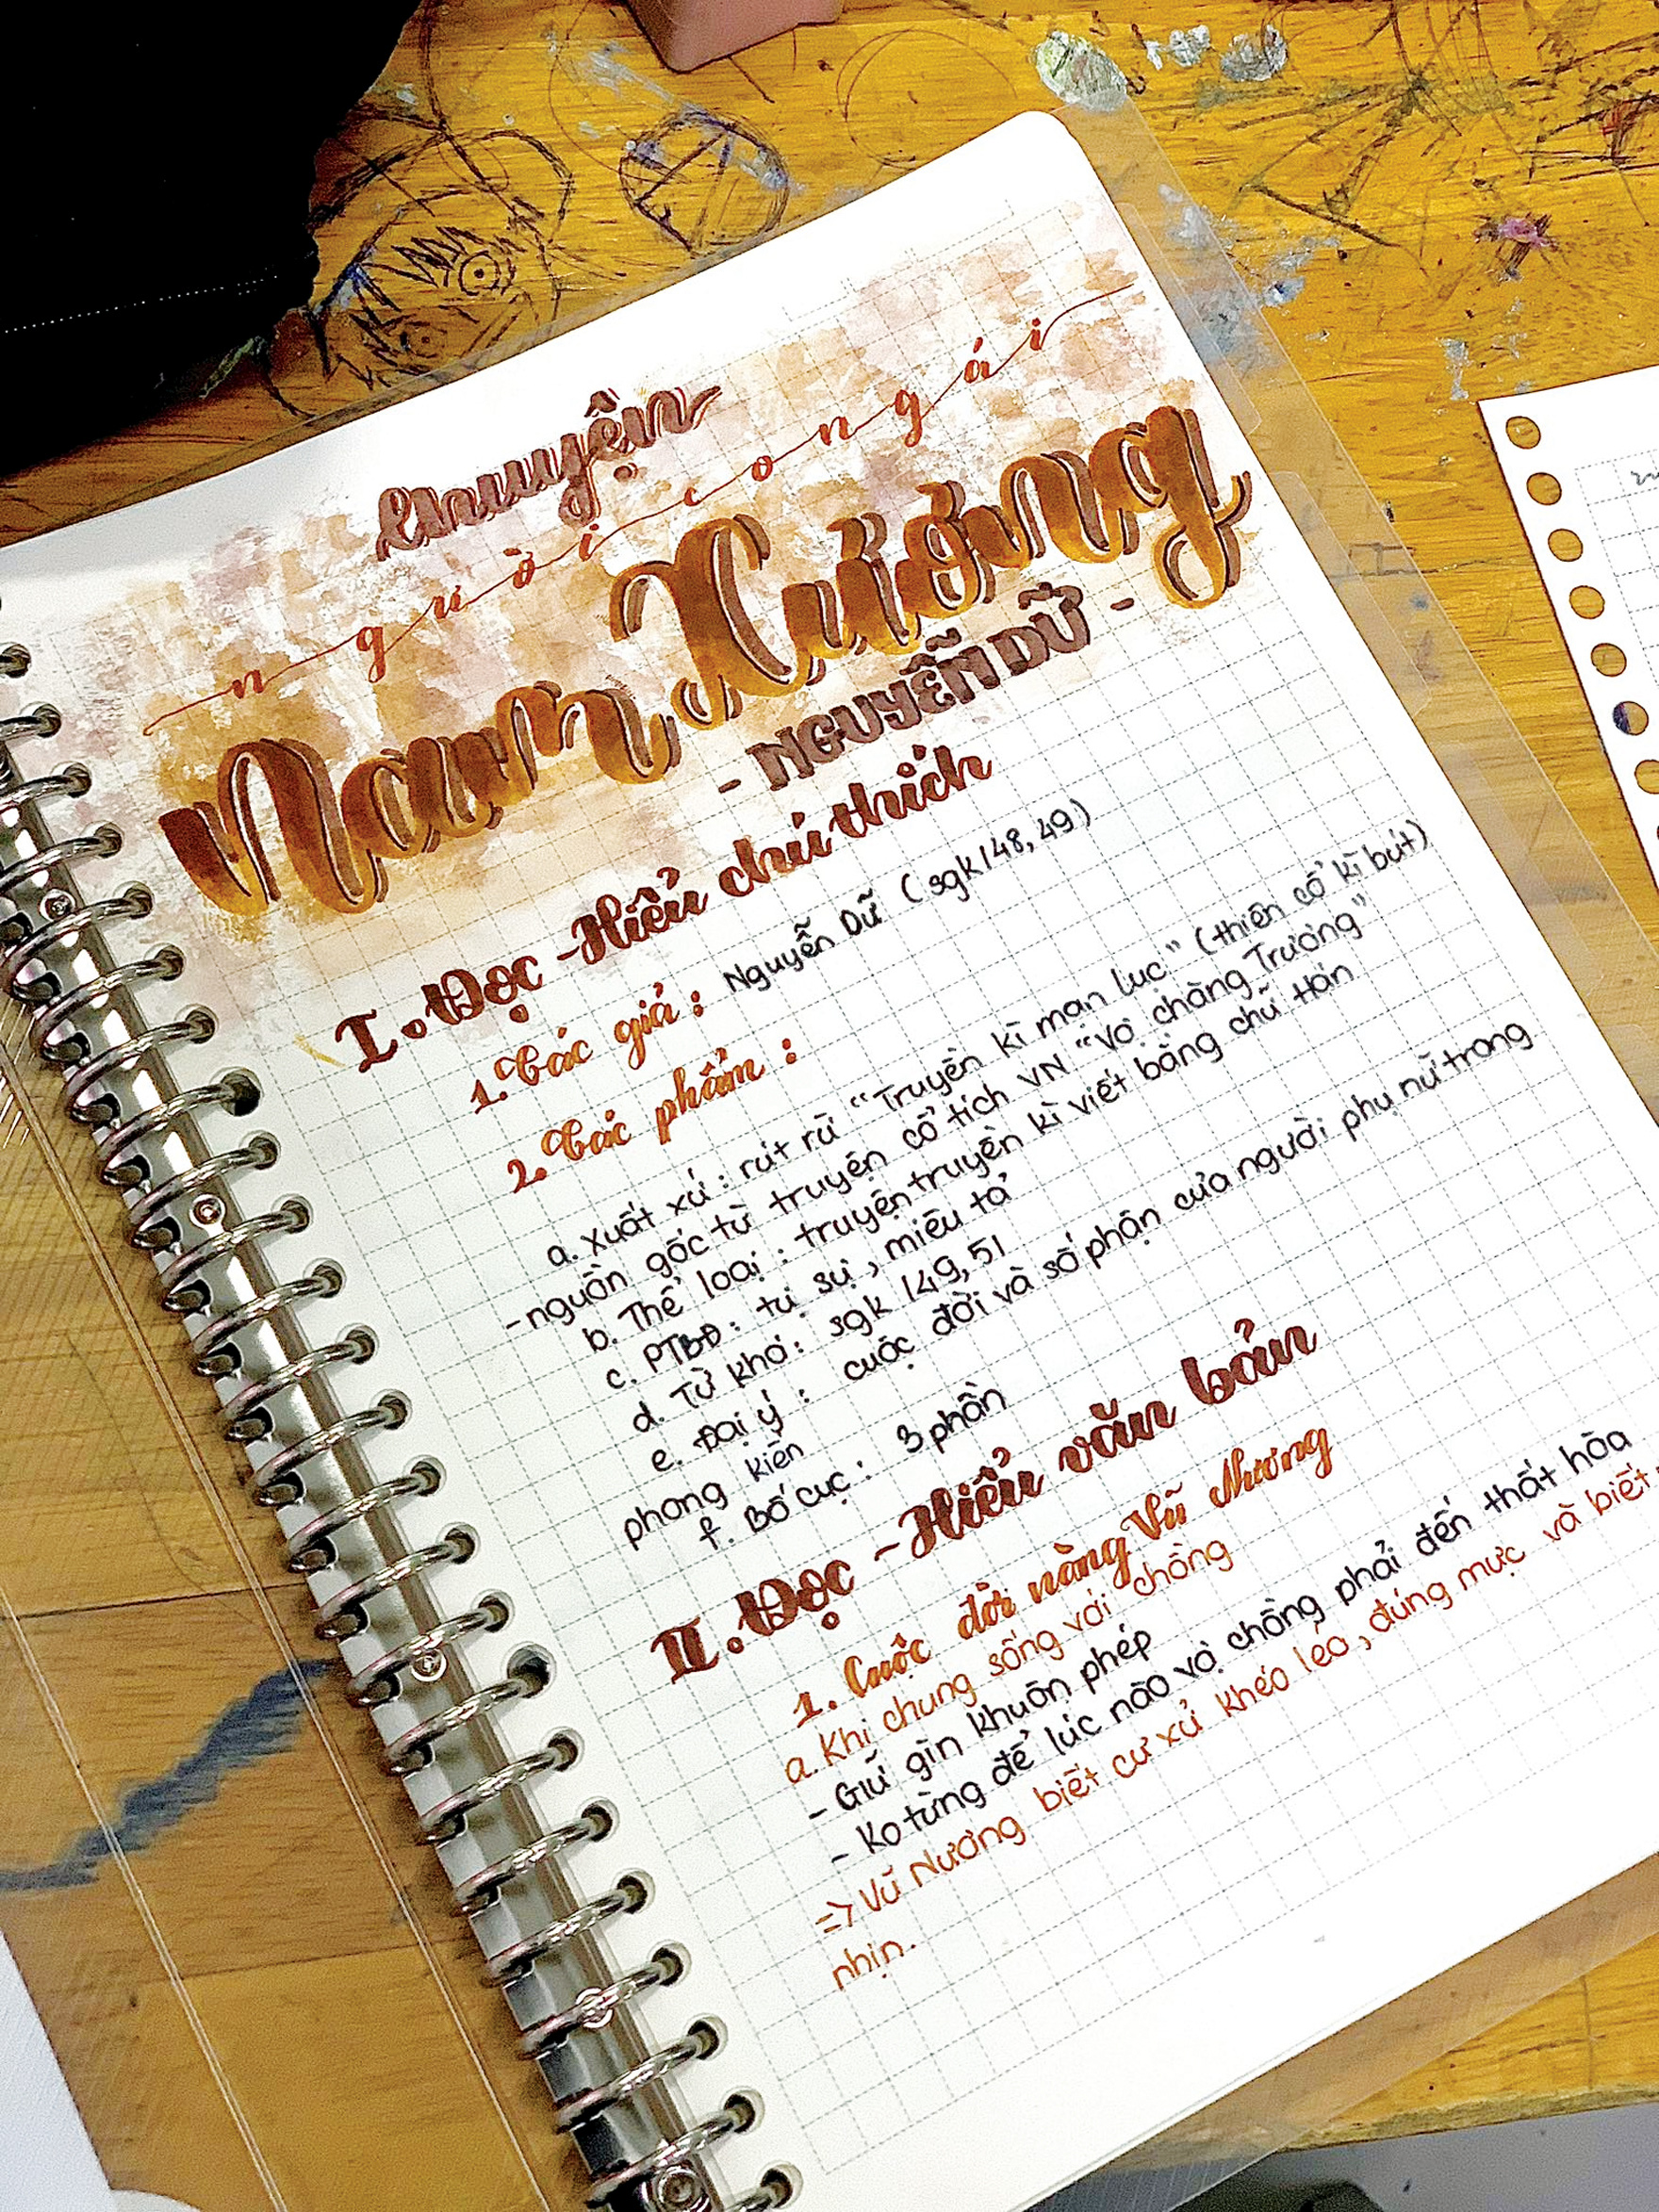 Chuyện
người con gái
Nam Xương
- NGUYỄN DỮ -
I. Đọc - Hiểu chú thích
1. Tác giả : Nguyễn Dữ (sgk 148, 49)
2. Tác phẩm :
a. Xuất xứ : rút rừ “Truyền kì mạn lục” (thiên cổ kì bút)
- nguồn gốc từ truyện cổ tích VN “Vợ chàng Trương”
b. Thể loại : truyện truyền kì viết bằng chữ Hán
c. PTBĐ : tự sự, miêu tả
d. Từ khó : sgk 149, 51
e. Đại ý : cuộc đời và số phận của người phụ nữ trong
phong kiến
f. Bố cục : 3 phần
II. Đọc - Hiểu văn bản
1. Cuộc đời nàng Vũ Nương
a. Khi chung sống với chồng
- Giữ gìn khuôn phép
- Ko từng để lúc nào vợ chồng phải đến thất hòa
=> Vũ Nương biết cư xử khéo léo, đúng mực và biết
nhịn.